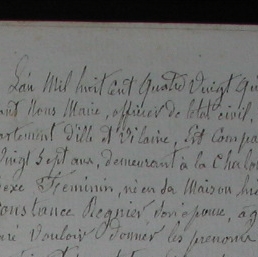 L'an Mil huit cent Quatre Vingt Qu
ant Nous Maire, officier de l'etat civil,
artement d'ille et Vilaine, Est Compa
Vingt Sept ans, demeurant à la Chalo
sexe Féminin, né en sa Maison, hie
onstance Regnier, son épouse, âg
aré Vouloir donner les prénoms